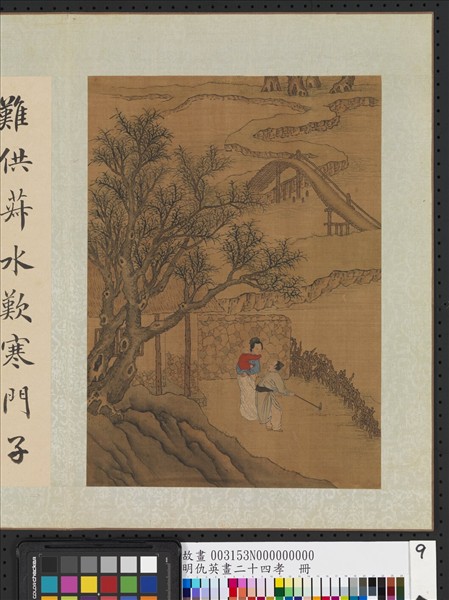 難供菽水歎寒門子
故畫 003153N000000000
明仇英畫二十四孝 冊
9
colorchecker